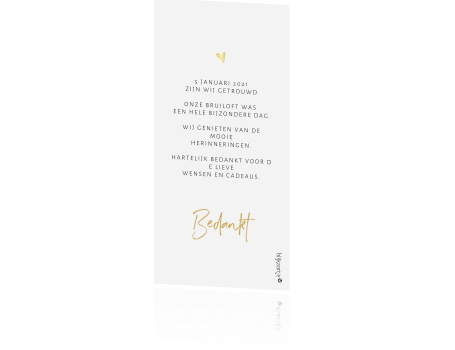 5 JANUARI 2021
ZIJN WIJ GETROUWD
ONZE BRUILOFT WAS
EEN HELE BIJZONDERE DAG.
WIJ GENIETEN VAN DE
MOOIE
HERINNERINGEN.
HARTELIJK BEDANKT VOOR D
E LIEVE
WENSEN EN CADEAUS.
Bedankt